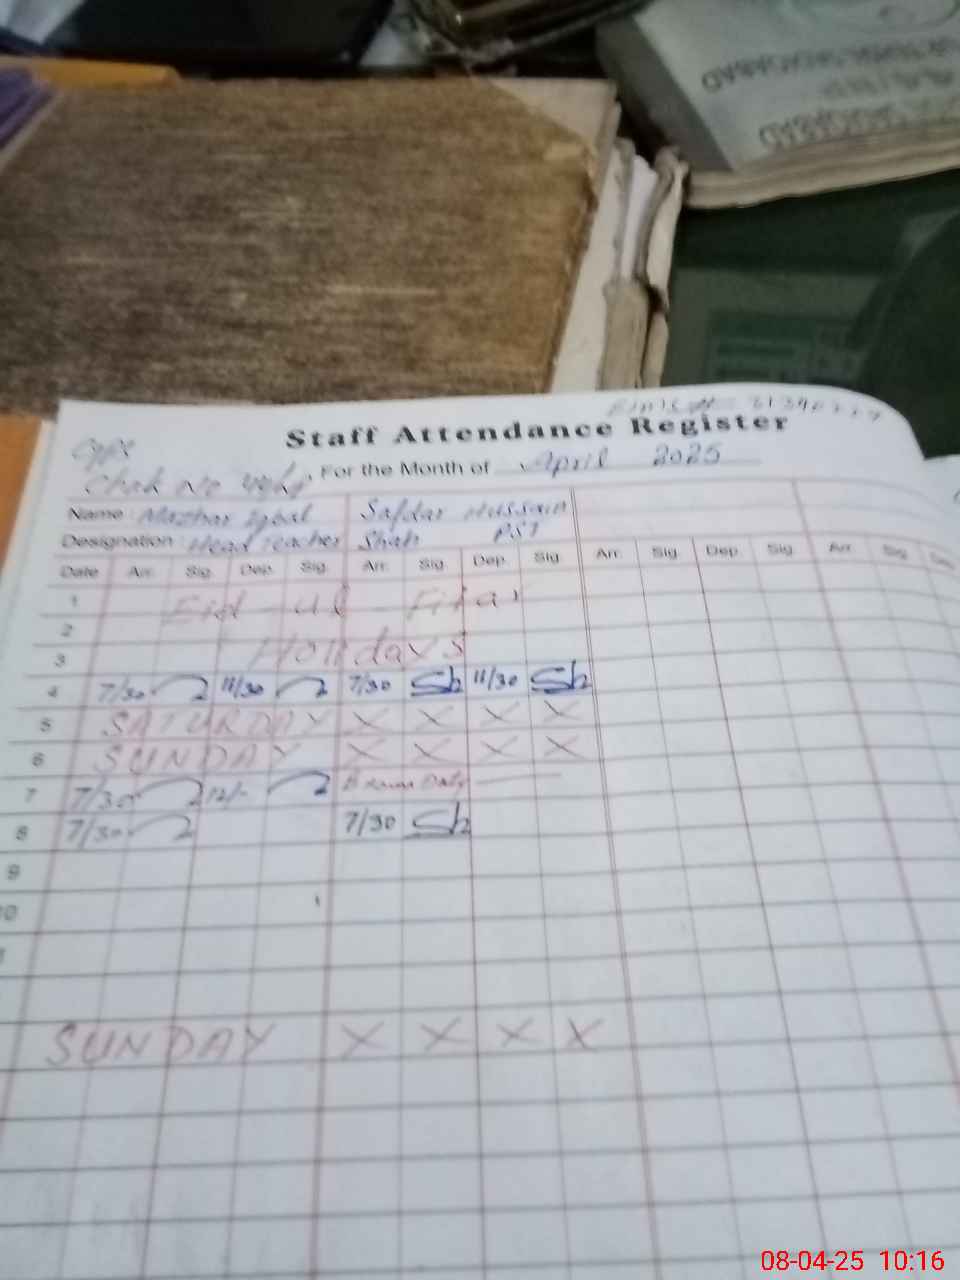 Staff Attendance Register
GPS
Chak No
For the Month of April 2025
Name: Mazhar Iqbal Safdar Hussain
Designation: Head Teacher Shah PST
Date Arr. Sig. Dep. Sig. Arr. Sig. Dep. Sig. Arr. Sig. Dep. Sig. Arr. Sig.
1 Eid-ul-Fitar
2
3 Holidays
4 7/30 11/30 7/30 Sh 11/30 Sh
5 SATURDAY X X X X
6 SUNDAY X X X X
7 7/30 12/- Exam Duty
8 7/30 7/30 Sh
9
SUNDAY X X X X
08-04-25 10:16